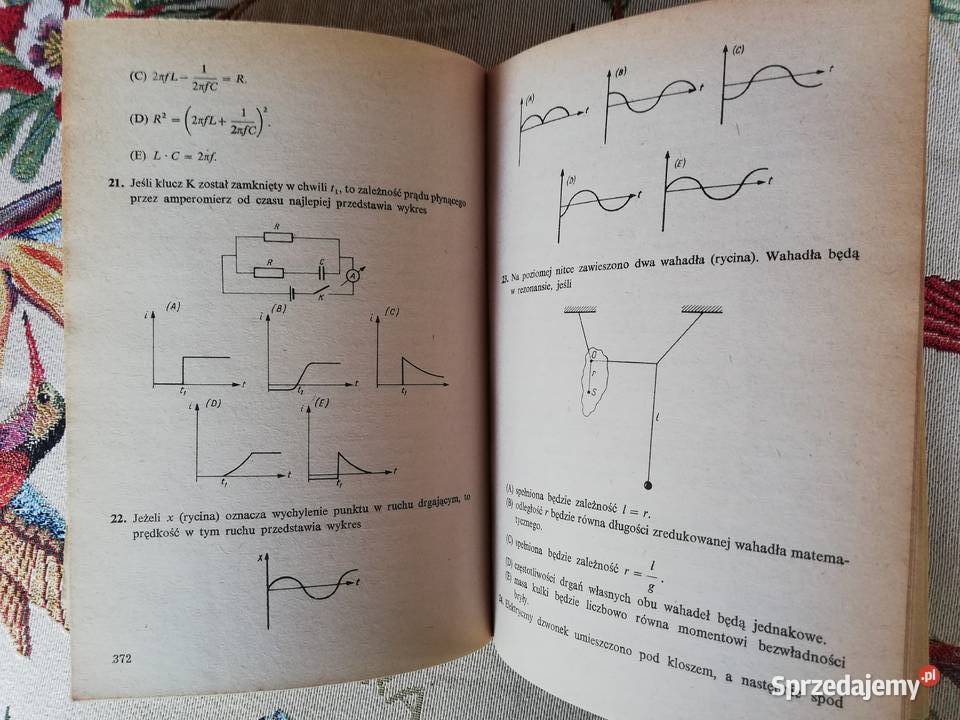 (C) 2πfL − 1/2πfC = R.
(D) R² = (2πfL + 1/2πfC)².
(E) L · C = 2πf.
21. Jeśli klucz K został zamknięty w chwili t₁, to zależność prądu płynącego
przez amperomierz od czasu najlepiej przedstawia wykres
R
R C A
K
(A) (B) (C)
i i i
t₁ t t₁ t t₁ t
(D) (E)
i i
t₁ t t₁ t
22. Jeżeli x (rycina) oznacza wychylenie punktu w ruchu drgającym, to
prędkość w tym ruchu przedstawia wykres
x
t
372
(A) (B) (C)
t t t
(D) (E)
t t
23. Na poziomej nitce zawieszono dwa wahadła (rycina). Wahadła będą
w rezonansie, jeśli
O
r
S
l
(A) spełniona będzie zależność l = r.
(B) odległość r będzie równa długości zredukowanej wahadła matema-
tycznego.
(C) spełniona będzie zależność r = l/g.
(D) częstotliwości drgań własnych obu wahadeł będą jednakowe.
(E) masa kulki będzie liczbowo równa momentowi bezwładności
bryły.
Elektryczny dzwonek umieszczono pod kloszem, a spod
Sprzedajemy.pl